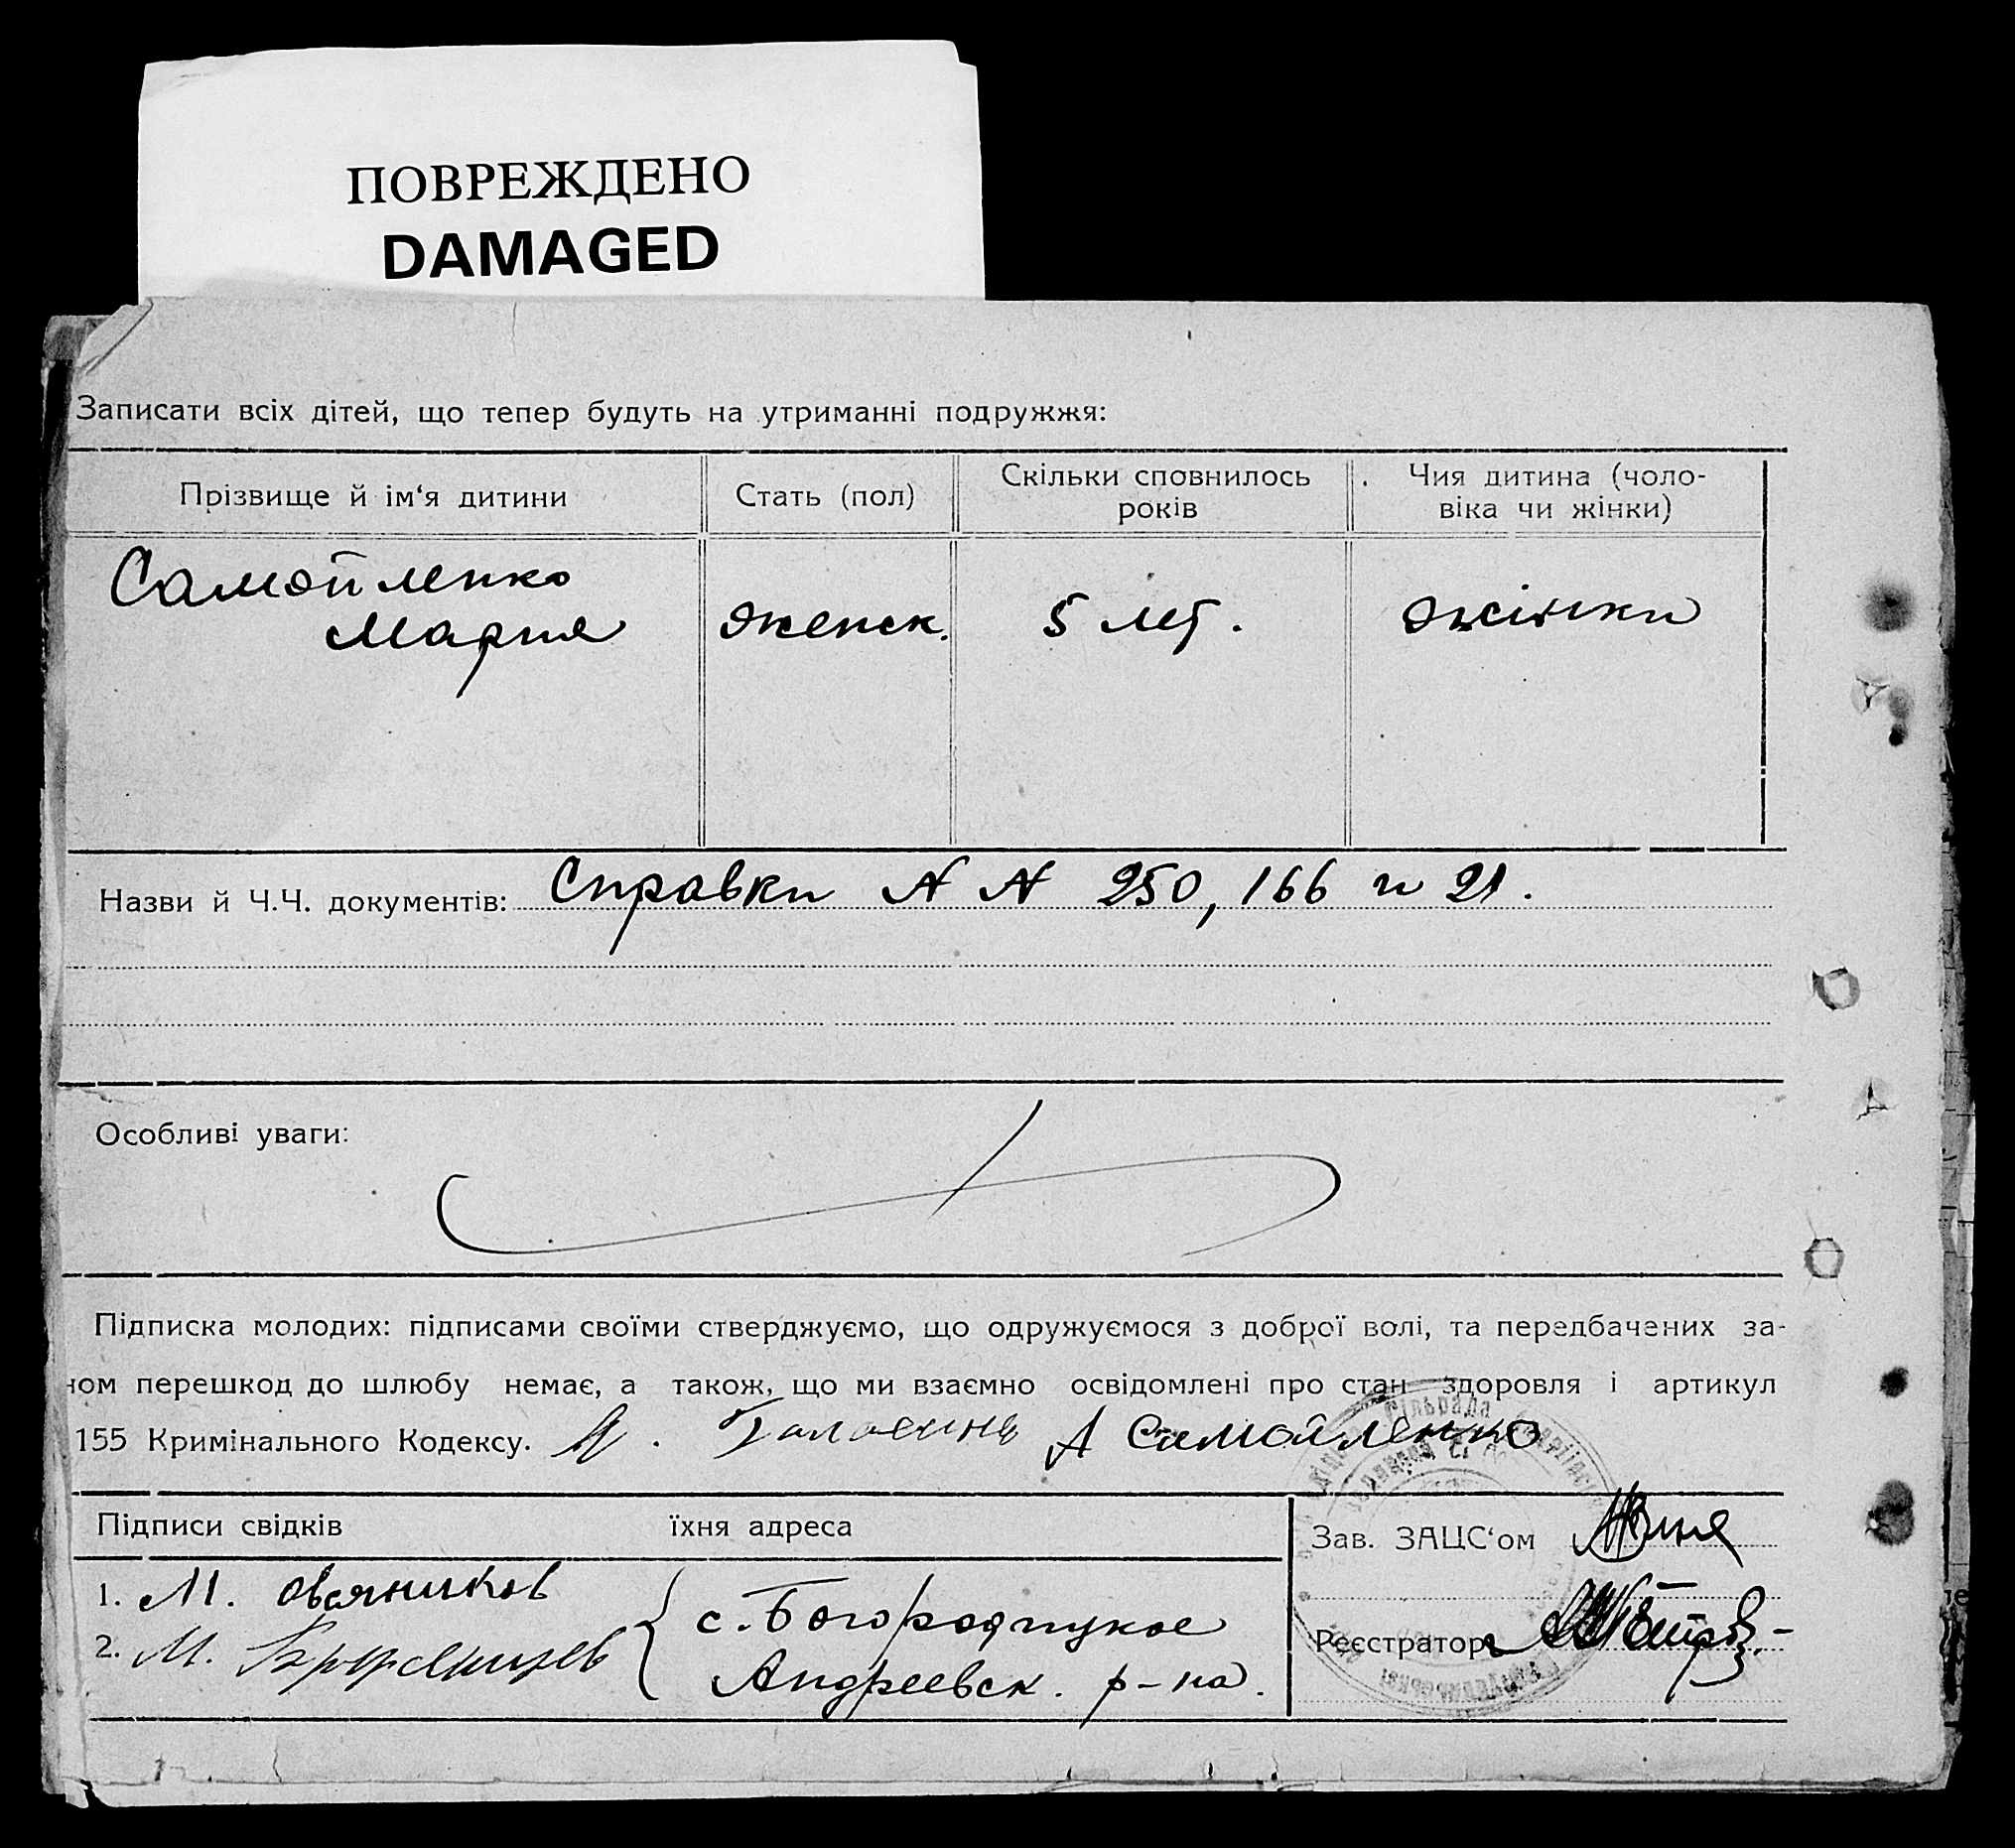 ПОВРЕЖДЕНО
DAMAGED
Записати всіх дітей, що тепер будуть на утриманні подружжя:
Прізвище й ім‘я дитини
Стать (пол)
Скільки сповнилось
років
Чия дитина (чоло-
віка чи жінки)
Самойленко
Мария
женск.
5 лет.
жінки
Назви й Ч.Ч. документів: Справки N N 250, 166 и 21.
Особливі уваги:
Підписка молодих: підписами своїми стверджуємо, що одружуємося з доброї волі, та передбачених за-
ном перешкод до шлюбу немає, а також, що ми взаємно освідомлені про стан здоровля і артикул
155 Кримінального Кодексу. А Самойленко
Підписи свідків
їхня адреса
Зав. ЗАЦС‘ом
1. М. Овсяников
с. Богородицкое
2. М.
Андреевск. р-на.
Реєстратор
сільрада